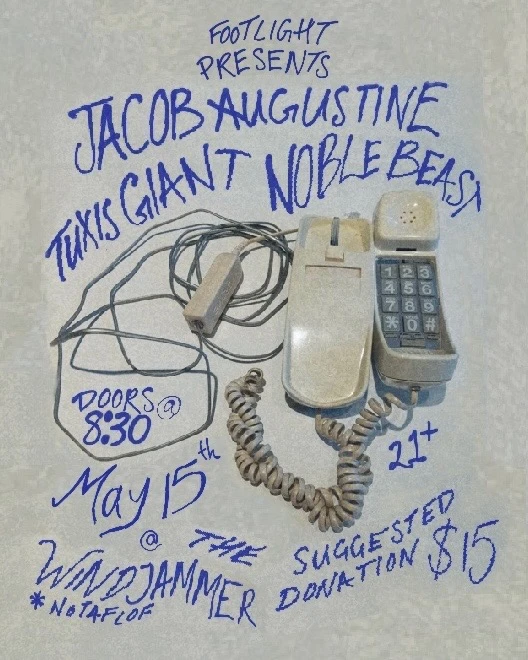 FOOTLIGHT
PRESENTS
JACOB AUGUSTINE
TUXIS GIANT NOBLE BEAST
1 2 3
4 5 6
7 8 9
* 0 #
DOORS @
8:30
21+
May 15th
@ THE
WINDJAMMER
*NOTAFLOF
SUGGESTED
DONATION $15